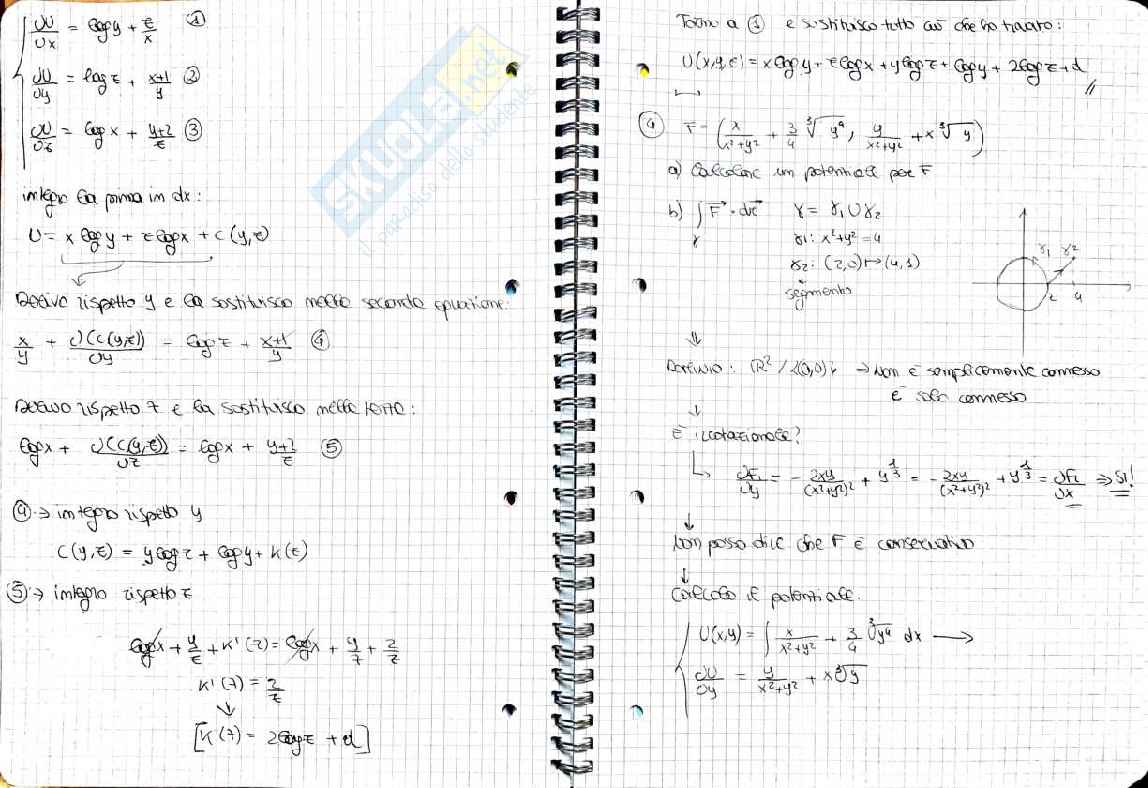 ∂U/∂x = log y + z/x ①
∂U/∂y = log z + (x+1)/y ②
∂U/∂z = log x + (y+2)/z ③
integro la prima in dx:
U = x log y + z log x + C(y,z)
Derivo rispetto y e la sostituisco nella seconda equazione:
x/y + ∂(C(y,z))/∂y = log z + (x+1)/y ④
Derivo rispetto z e la sostituisco nella terza:
log x + ∂(C(y,z))/∂z = log x + (y+2)/z ⑤
④ → integro rispetto y
C(y,z) = y log z + log y + K(z)
⑤ → integro rispetto z
log x + y/z + K'(z) = log x + y/z + 2/z
K'(z) = 2/z
[K(z) = 2 log z + d]
SKUOLA.net
il paradiso dello studente
Torno a ① e sostituisco tutto ciò che ho trovato:
U(x,y,z) = x log y + z log x + y log z + log y + 2 log z + d //
④ F = (x/(x²+y²) + 3/4 ∛y⁴, y/(x²+y²) + x ∛y)
a) Calcolare un potenziale per F
b) ∫γ F⃗ · dr⃗ γ = γ1 ∪ γ2
γ1: x²+y² = 4
γ2: (2,0) ↦ (4,1)
segmento
γ1 γ2
2 4
⇓
Dominio: ℝ² / {(0,0)} → Non è semplicemente connesso
è solo connesso
↓
È irrotazionale?
↳ ∂F1/∂y = - 2xy/(x²+y²)² + y^(1/3) = - 2xy/(x²+y²)² + y^(1/3) = ∂F2/∂x ⇒ SI!
↓
Non posso dire che F è conservativo
↓
Calcolo il potenziale.
U(x,y) = ∫ x/(x²+y²) + 3/4 ∛y⁴ dx →
∂U/∂y = y/(x²+y²) + x ∛y